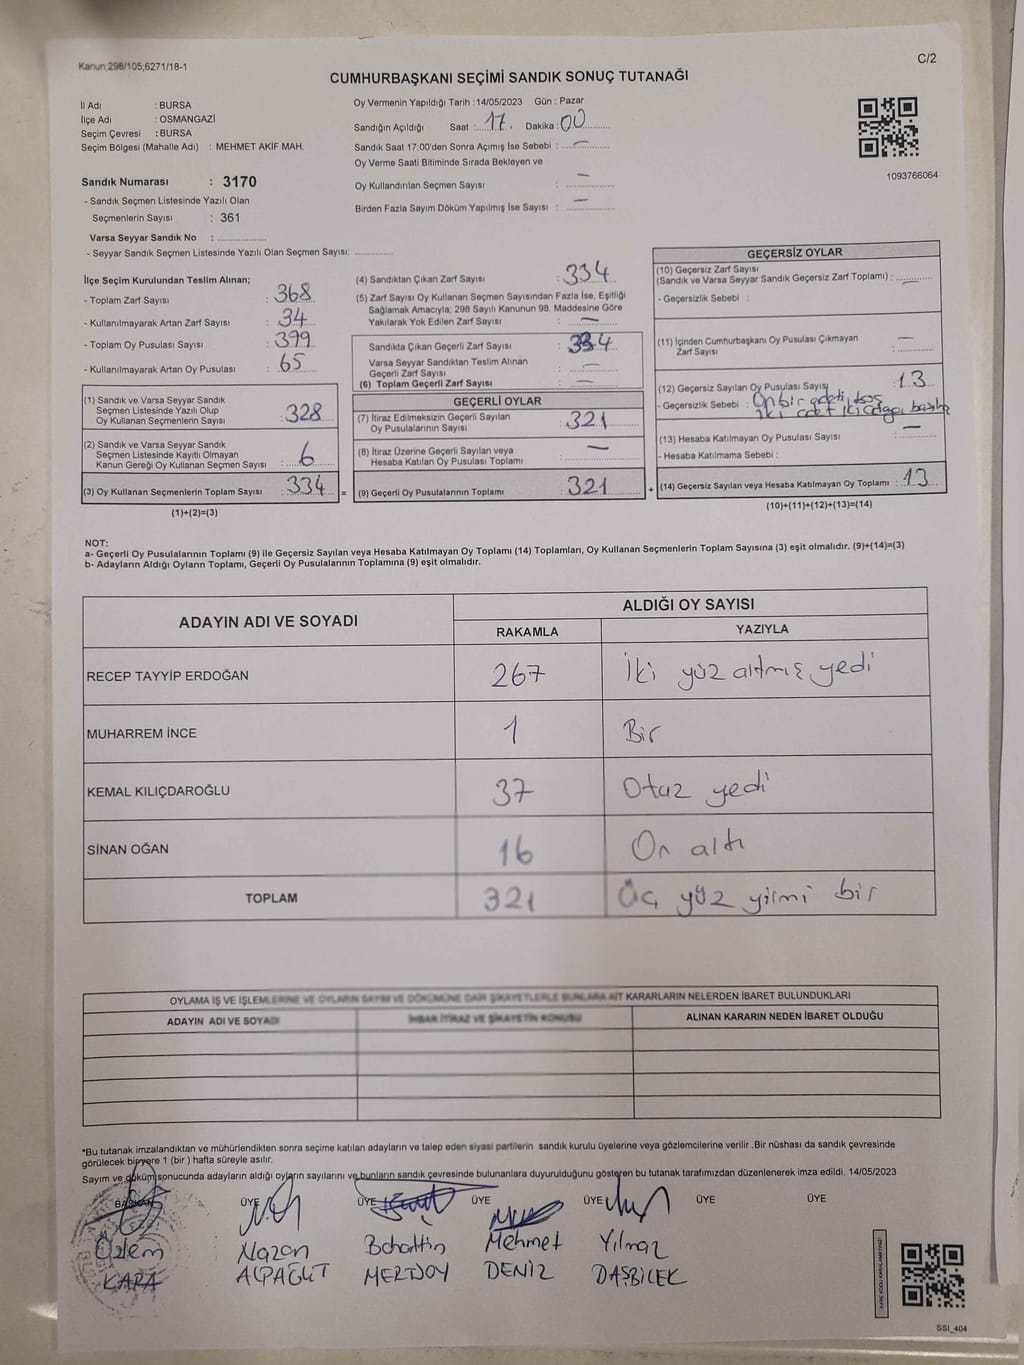 Kanun;298/105;6271/18-1
C/2
CUMHURBAŞKANI SEÇİMİ SANDIK SONUÇ TUTANAĞI
İl Adı : BURSA
İlçe Adı : OSMANGAZİ
Seçim Çevresi : BURSA
Seçim Bölgesi (Mahalle Adı) : MEHMET AKİF MAH.
Sandık Numarası : 3170
- Sandık Seçmen Listesinde Yazılı Olan
Seçmenlerin Sayısı : 361
Varsa Seyyar Sandık No :
- Seyyar Sandık Seçmen Listesinde Yazılı Olan Seçmen Sayısı:
Oy Vermenin Yapıldığı Tarih : 14/05/2023 Gün : Pazar
Sandığın Açıldığı Saat : 17 Dakika : 00
Sandık Saat 17:00'den Sonra Açımış İse Sebebi : —
Oy Verme Saati Bitiminde Sırada Bekleyen ve
Oy Kullandırılan Seçmen Sayısı : —
Birden Fazla Sayım Döküm Yapılmış İse Sayısı : —
1093766064
İlçe Seçim Kurulundan Teslim Alınan;
- Toplam Zarf Sayısı : 368
- Kullanılmayarak Artan Zarf Sayısı : 34
- Toplam Oy Pusulası Sayısı : 399
- Kullanılmayarak Artan Oy Pusulası : 65
(1) Sandık ve Varsa Seyyar Sandık
Seçmen Listesinde Yazılı Olup
Oy Kullanan Seçmenlerin Sayısı : 328
(2) Sandık ve Varsa Seyyar Sandık
Seçmen Listesinde Kayıtlı Olmayan
Kanun Gereği Oy Kullanan Seçmen Sayısı : 6
(3) Oy Kullanan Seçmenlerin Toplam Sayısı : 334 =
(1)+(2)=(3)
(4) Sandıktan Çıkan Zarf Sayısı : 334
(5) Zarf Sayısı Oy Kullanan Seçmen Sayısından Fazla İse, Eşitliği
Sağlamak Amacıyla; 298 Sayılı Kanunun 98. Maddesine Göre
Yakılarak Yok Edilen Zarf Sayısı : —
Sandıkta Çıkan Geçerli Zarf Sayısı : 334
Varsa Seyyar Sandıktan Teslim Alınan
Geçerli Zarf Sayısı : —
(6) Toplam Geçerli Zarf Sayısı : —
GEÇERLİ OYLAR
(7) İtiraz Edilmeksizin Geçerli Sayılan
Oy Pusulalarının Sayısı : 321
(8) İtiraz Üzerine Geçerli Sayılan veya
Hesaba Katılan Oy Pusulası Toplamı : —
(9) Geçerli Oy Pusulalarının Toplamı : 321 +
GEÇERSİZ OYLAR
(10) Geçersiz Zarf Sayısı
(Sandık ve Varsa Seyyar Sandık Geçersiz Zarf Toplamı) :
- Geçersizlik Sebebi :
(11) İçinden Cumhurbaşkanı Oy Pusulası Çıkmayan
Zarf Sayısı : —
(12) Geçersiz Sayılan Oy Pusulası Sayısı : 13
- Geçersizlik Sebebi : Onbir adeti boş
iki adet iki adaya basılmış
(13) Hesaba Katılmayan Oy Pusulası Sayısı : —
- Hesaba Katılmama Sebebi :
(14) Geçersiz Sayılan veya Hesaba Katılmayan Oy Toplamı : 13
(10)+(11)+(12)+(13)=(14)
NOT:
a- Geçerli Oy Pusulalarının Toplamı (9) ile Geçersiz Sayılan veya Hesaba Katılmayan Oy Toplamı (14) Toplamları, Oy Kullanan Seçmenlerin Toplam Sayısına (3) eşit olmalıdır. (9)+(14)=(3)
b- Adayların Aldığı Oyların Toplamı, Geçerli Oy Pusulalarının Toplamına (9) eşit olmalıdır.
ADAYIN ADI VE SOYADI
ALDIĞI OY SAYISI
RAKAMLA YAZIYLA
RECEP TAYYİP ERDOĞAN 267 İki yüz altmış yedi
MUHARREM İNCE 1 Bir
KEMAL KILIÇDAROĞLU 37 Otuz yedi
SİNAN OĞAN 16 On altı
TOPLAM 321 Üç yüz yirmi bir
OYLAMA İŞ VE İŞLEMLERİNE VE OYLARIN SAYIM VE DÖKÜMÜNE DAİR ŞİKAYETLERLE BUNLARA AİT KARARLARIN NELERDEN İBARET BULUNDUKLARI
ADAYIN ADI VE SOYADI İHBAR İTİRAZ VE ŞİKAYETİN KONUSU ALINAN KARARIN NEDEN İBARET OLDUĞU
*Bu tutanak imzalandıktan ve mühürlendikten sonra seçime katılan adayların ve talep eden siyasi partilerin sandık kurulu üyelerine veya gözlemcilerine verilir .Bir nüshası da sandık çevresinde
görülecek biryere 1 (bir ) hafta süreyle asılır.
Sayım ve döküm sonucunda adayların aldığı oyların sayılarını ve bunların sandık çevresinde bulunanlara duyurulduğunu gösteren bu tutanak tarafımızdan düzenlenerek imza edildi. 14/05/2023
BAŞKAN ÜYE ÜYE ÜYE ÜYE ÜYE ÜYE
Özlem Nazan Bahattin Mehmet Yılmaz
KARA ALPAĞUT MERTSOY DENİZ DAŞBİLEK
KARE KODU KARALAMAYINIZ!
SSI_404